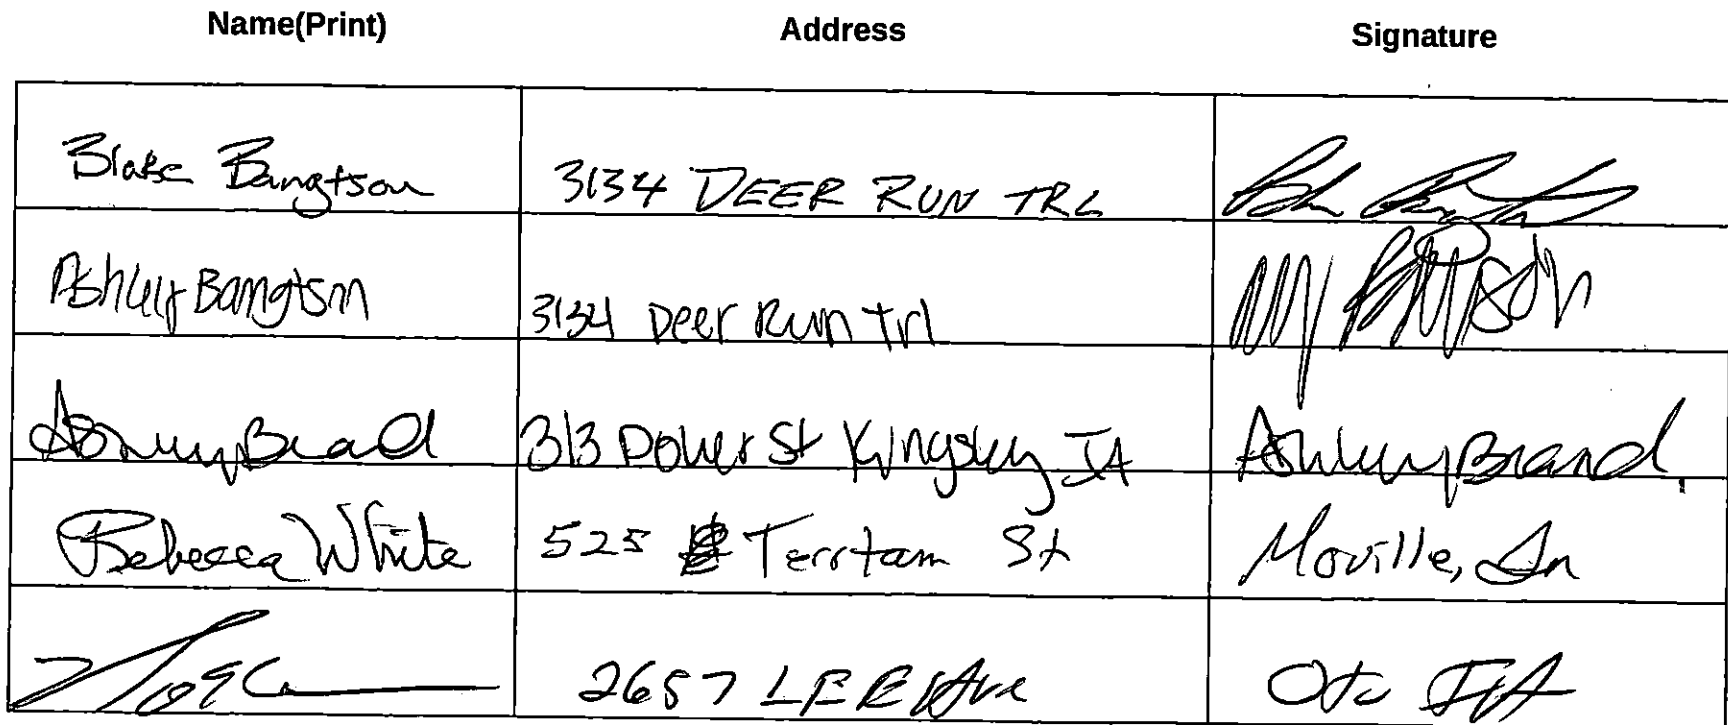 Name(Print) Address Signature
Blake Bangtson 3134 DEER RUN TRL
Ashley Bangtson 3134 Deer Run trl
Ashley Brand 313 Dover St Kingsley IA Ashley Brand
Rebecca White 525 St Moville, Ia
2657 LEE Ave Oto IA